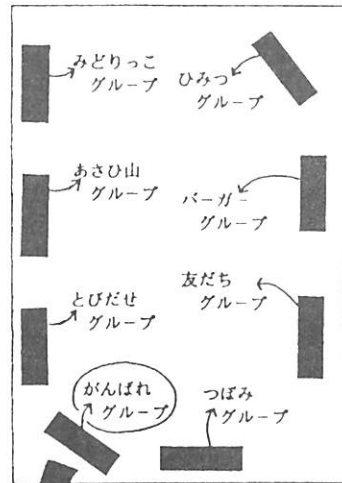 みどりっこ
グループ
ひみつ
グループ
あさひ山
グループ
バーガー
グループ
とびだせ
グループ
友だち
グループ
がんばれ
グループ
つぼみ
グループ